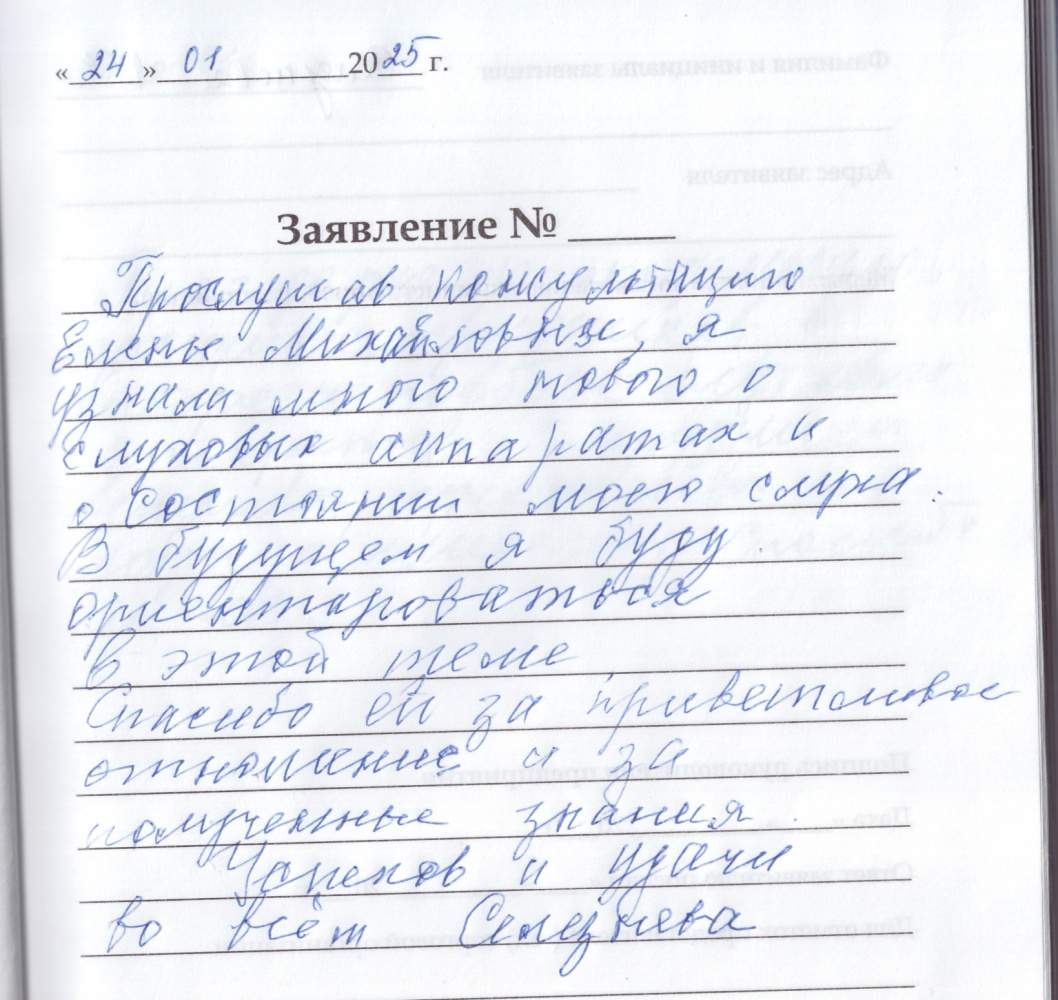 « 24 » 01 2025 г.
Заявление № ____
Прослушав консультацию
Елены Михайловны, я
узнала много нового о
слуховых аппаратах и
о состоянии моего слуха.
В будущем я буду
ориентироваться
в этой теме
Спасибо ей за приветливое
отношение и за
полученные знания.
Успехов и удачи
во всём Селезнева